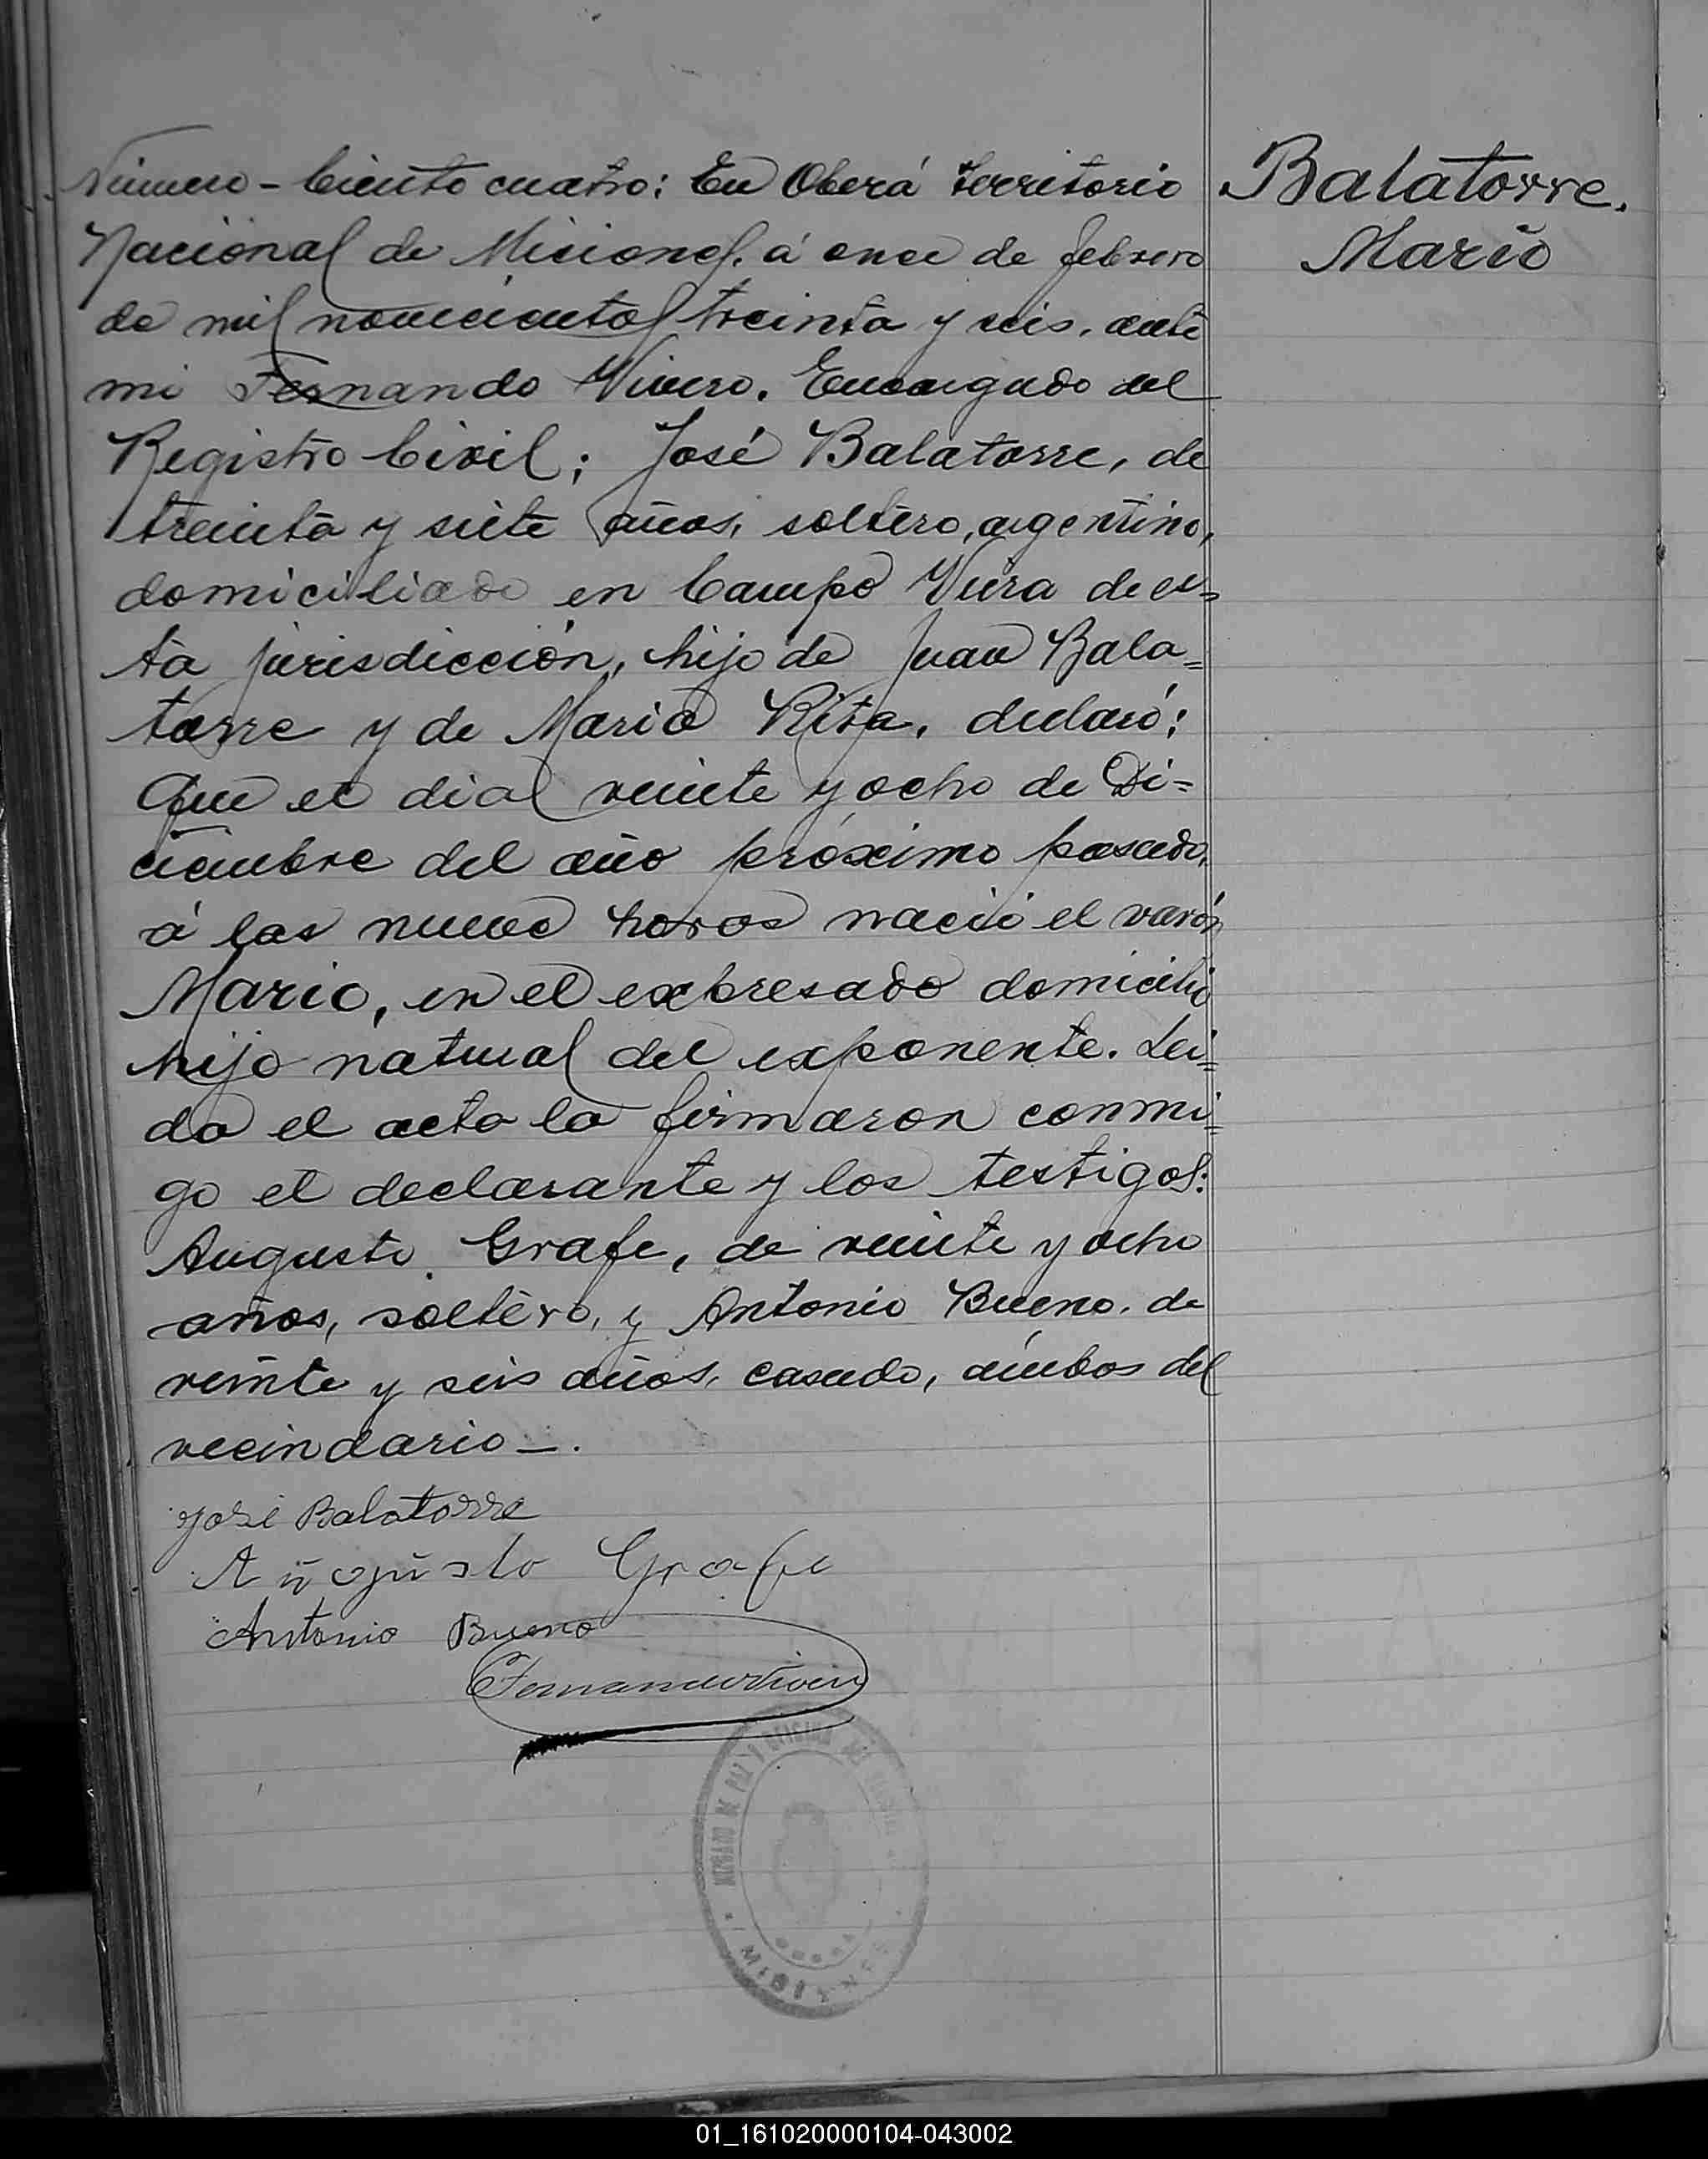 Número - Ciento cuatro: En Oberá Territorio
Nacional de Misiones, á once de febrero
de mil novecientos treinta y seis, ante
mi Fernando Vivero, Encargado del
Registro Civil; José Balatorre, de
treinta y siete años, soltero, argentino,
domiciliado en Campo Viera de es=
ta jurisdicción, hijo de Juan Bala=
torre y de Maria Rita, declaró:
Que el dia veinte y ocho de Di=
ciembre del año próximo pasado,
á las nueve horas nació el varón
Mario, en el expresado domicilio
hijo natural del exponente. Lei=
da el acta la firmaron conmi=
go el declarante y los testigos:
Augusto Grafe, de veinte y ocho
años, soltero, y Antonio Bueno, de
veinte y seis años, casado, ámbos del
vecindario_.
José Balatorre
Aŭgŭsto Grafe
Antonio Bueno
Balatorre.
Mario
JUZGADO DE PAZ Y OFICINA DEL
MISIONES
01_161020000104-043002